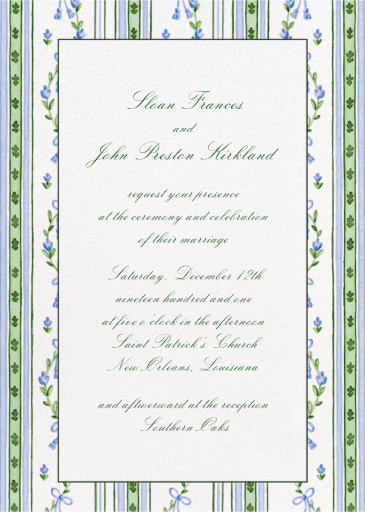 Sloan Frances
and
John Preston Kirkland
request your presence
at the ceremony and celebration
of their marriage
Saturday, December 12th
nineteen hundred and one
at five o'clock in the afternoon
Saint Patrick's Church
New Orleans, Louisiana
and afterward at the reception
Southern Oaks